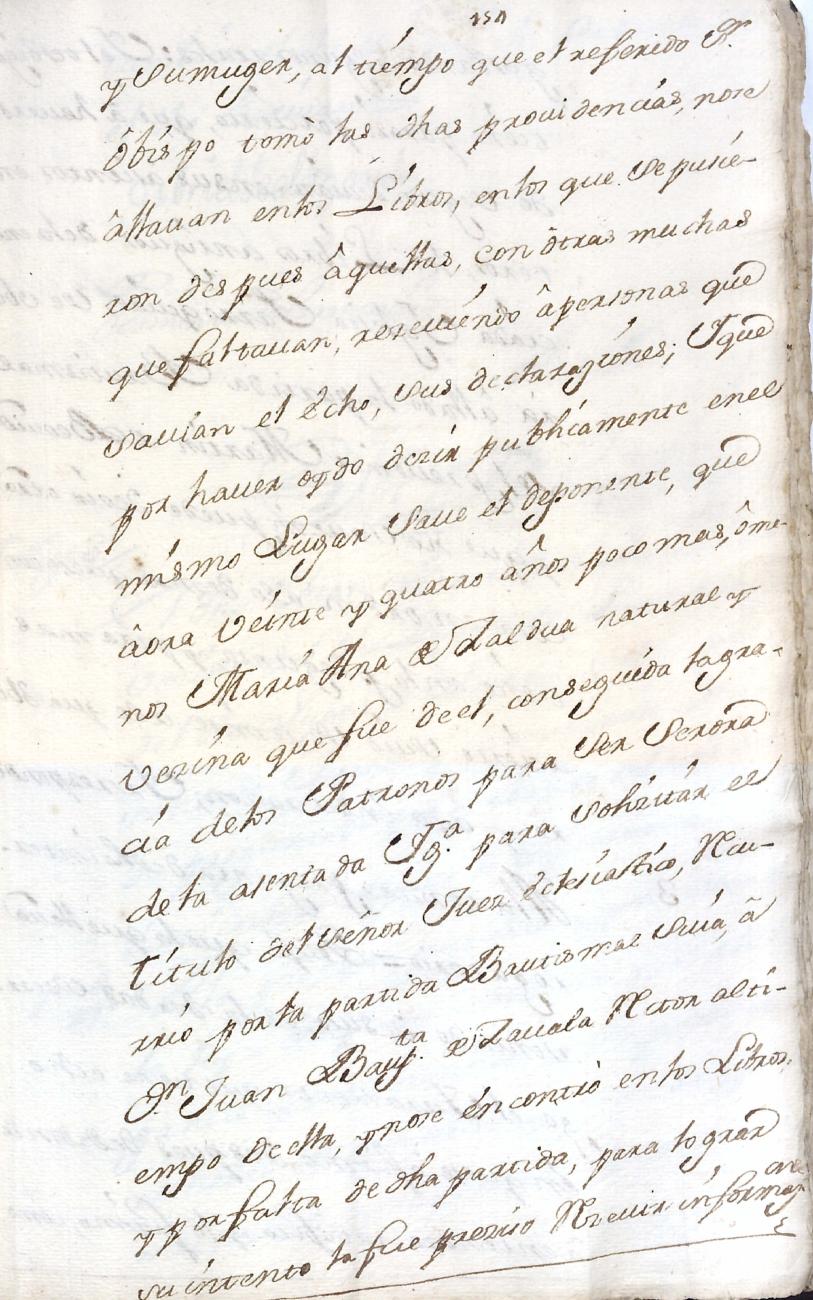 154
y Sumuger, al tiémpo que el referido Sr.
ôbispo tomò las dhas providencias, nose
âllavan enlos Libros, enlos que Se pusie-
ron despues âquellas, con ôtras muchas
que faltavan, reseviendo âpersonas que
Savian el êcho, sus declaraziones; Y que
por haver oydo dezir publicamente enel
mismo Lugar Save el deponente, que
âora veinte y quatro años poco mas, ôme-
nos Maria Ana de Zaldua natural y
vezina que fue de el, conseguida lagra-
cia delos Patronos para Ser Serora
dela asentada Yg.a para Solizitar el
titulo del señor Juez êclesiastico, Recu-
rrió por la partida Bautismal Suia, â
Dn Juan Baup.ta de Zavala Retor alti-
empo de ella, y nose éncontrò enlos Libros,
y por falta de dha partida, para lograr
su intento la fue preziso Rezevir informaz.one